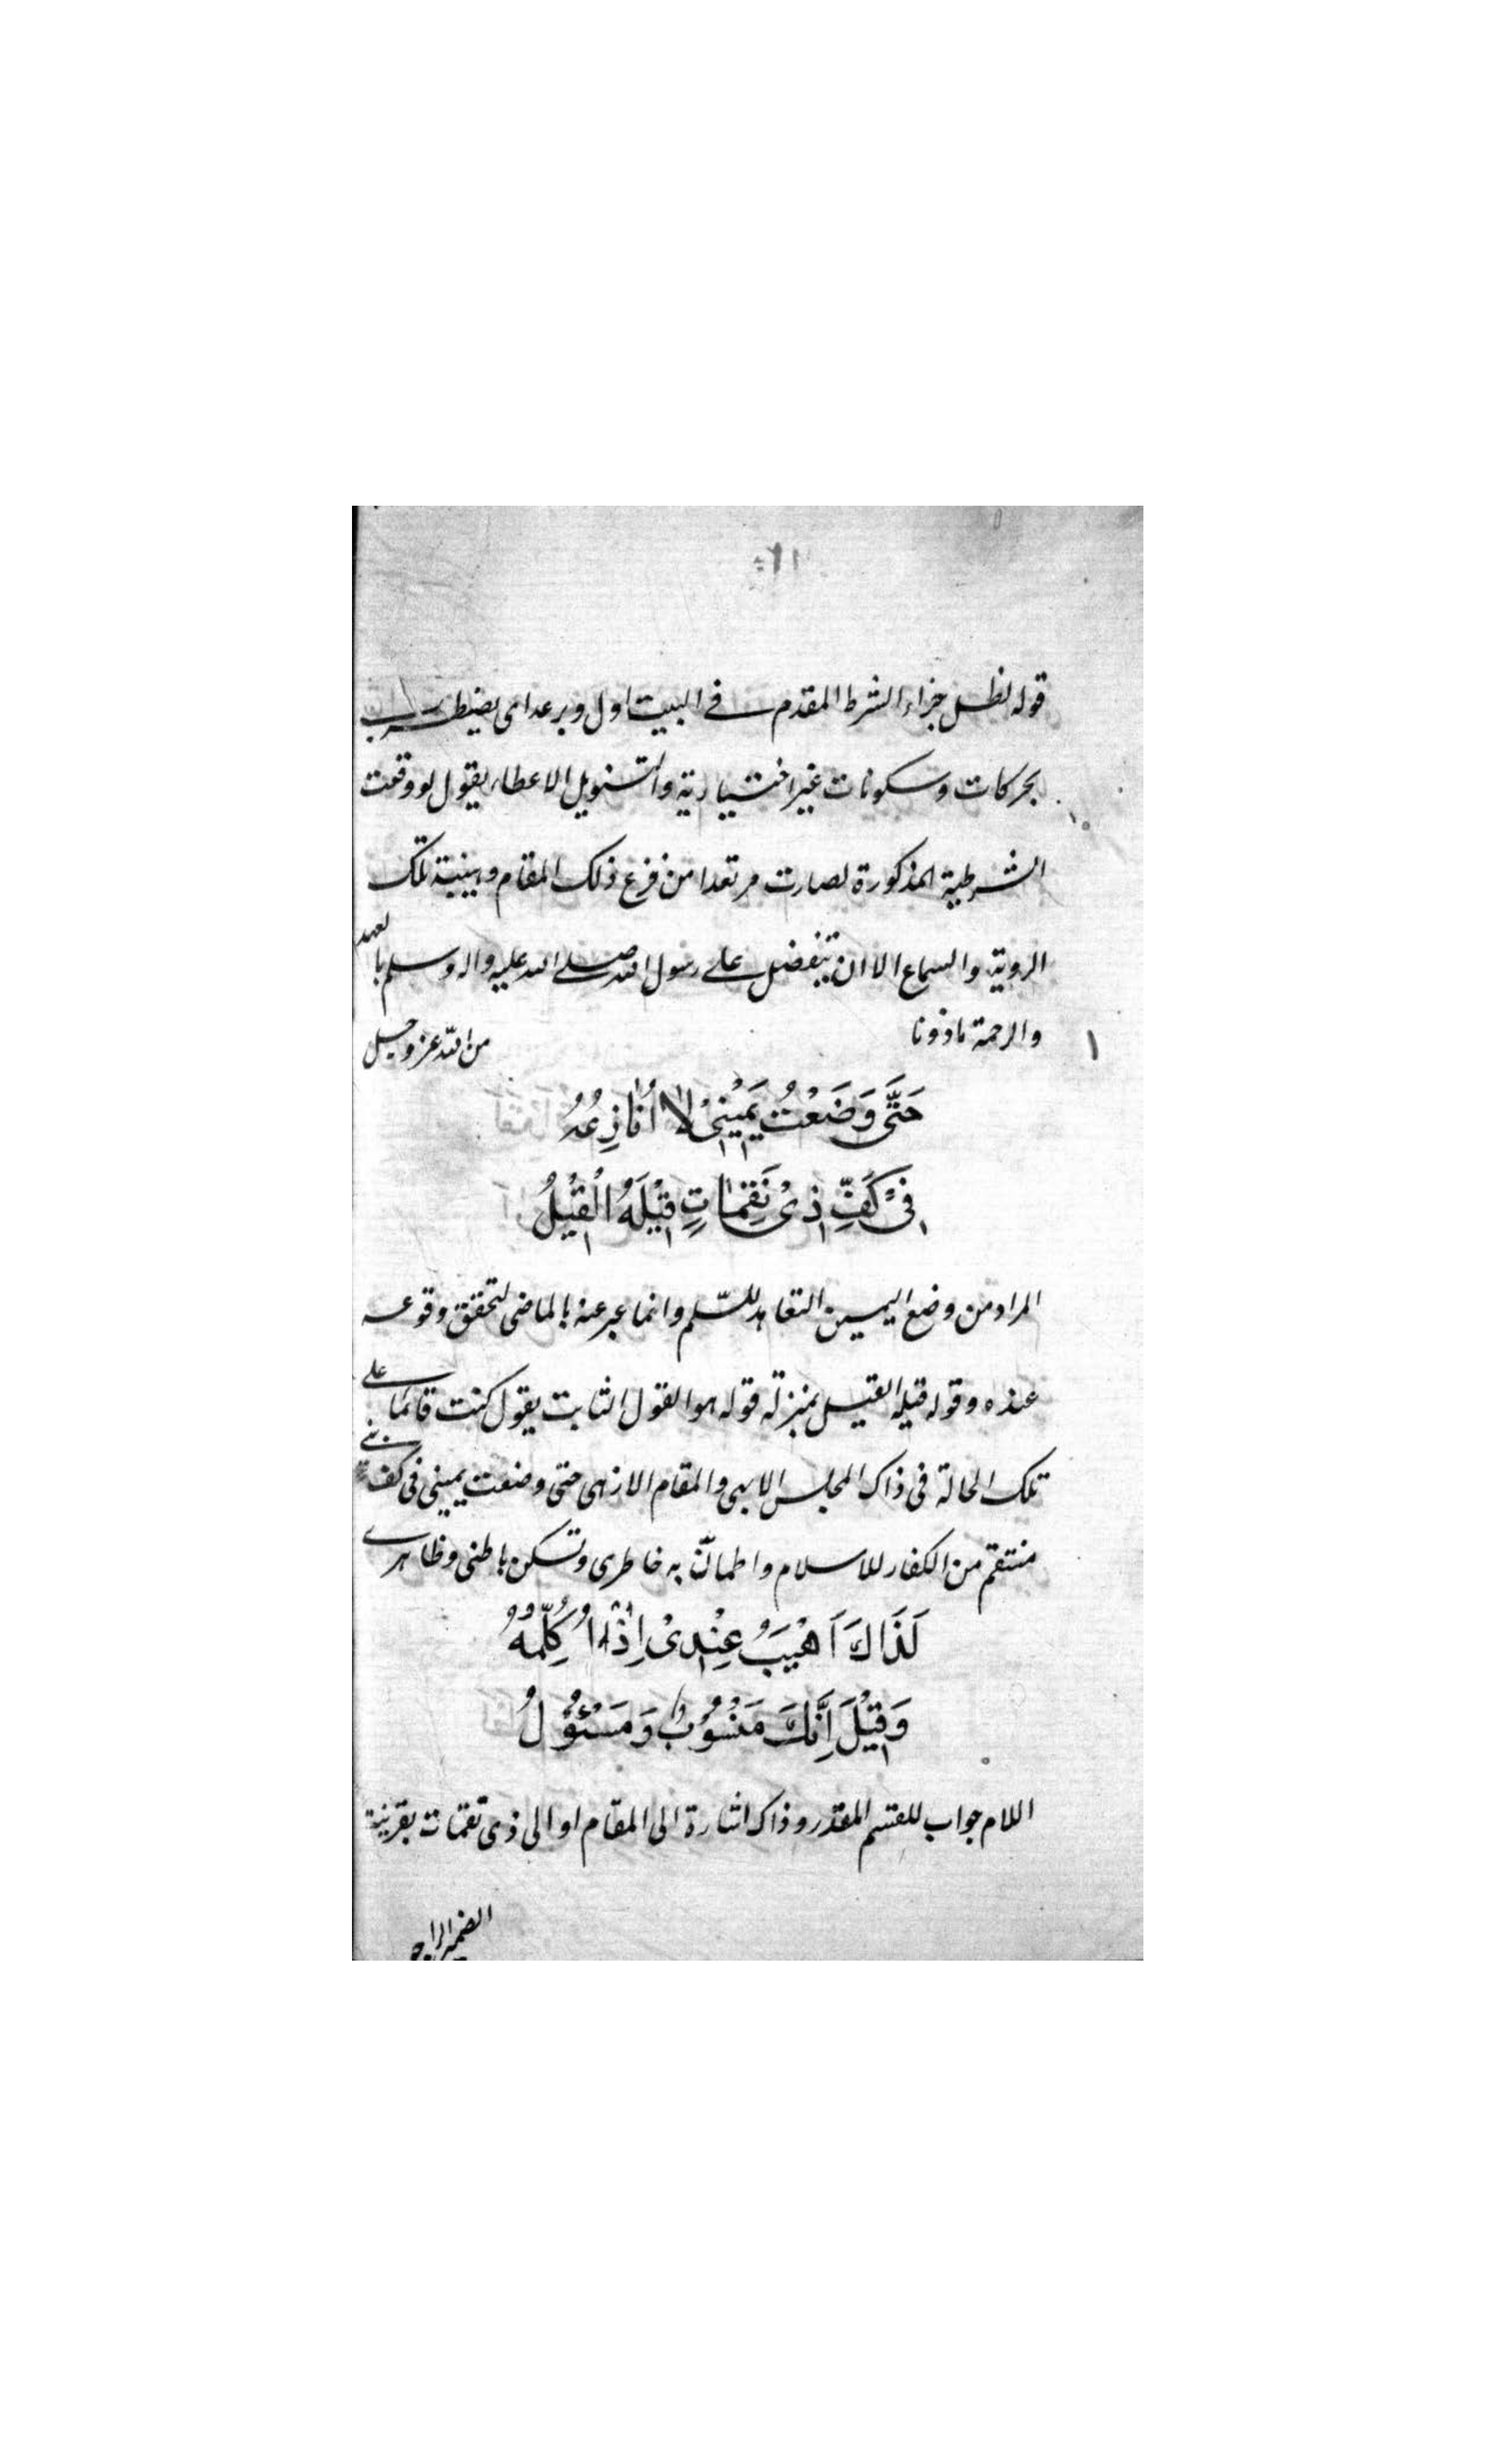 قوله لظل جزاء الشرط المقدم فى البيت اول ويرعد اى يضطرب
بحركات وسكونات غير اختيارية والتنويل الاعطاء يقول لو وقعت
الشرطية المذكورة لصارت مرتعدا من فزع ذلك المقام وهيبة تلك
الروية والسماع الا ان يتفضل على رسول الله صلى الله عليه واله وسلم بالعهد
والرحمة ماذونا من الله عز وجل
حَتّٰى وَضَعْتُ يَمِيْنِىْ لَا أُنَازِعُهُ
فِىْ كَفِّ ذِىْ نَقِمَاتٍ قِيْلَهُ الْقِيْلُ
المراد من وضع اليمين التعاهد للسّلم وانما عبر عنه بالماضى لتحقق وقوعه
عنده وقوله قيله القيل بمنزلة قوله هو القول الثابت يقول كنت قائما على
تلك الحالة فى ذاك المجلس الابهى والمقام الازهى حتى وضعت يمينى فى كف
منتقم من الكفار للاسلام واطمانّ به خاطرى وتسكن باطنى وظاهرى
لَذَاكَ اَهْيَبُ عِنْدِىْ اِذْ اُكَلِّمُهُ
وَقِيْلَ اِنَّكَ مَنْسُوْبٌ وَمَسْئُوْلُ
اللام جواب للقسم المقدر وذاك اشارة الى المقام او الى ذى نقمات بقرينة
الضمير